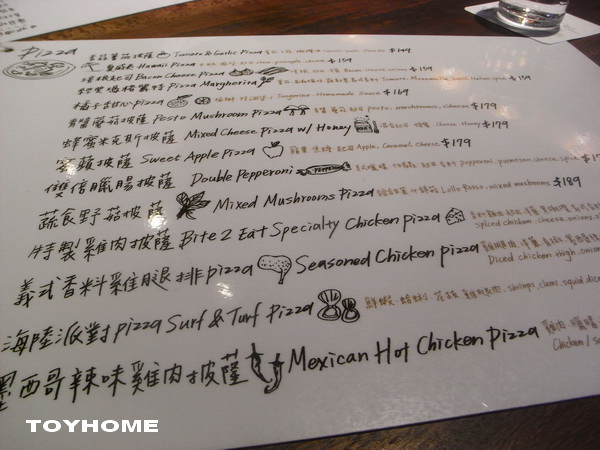 Pizza
Tomato & Garlic Pizza $149
夏威夷 Hawaii Pizza $159
培根起司 Bacon Cheese Pizza $159
瑪格麗特 Pizza Margherita $159
橘子甜心 pizza Tangerine Homemade Sauce $169
青醬蘑菇披薩 Pesto Mushroom Pizza pesto, mushrooms, cheese $179
蜂蜜米克斯披薩 Mixed Cheese Pizza w/ Honey Cheese, Honey $179
蜜蘋披薩 Sweet Apple Pizza 蘋果 Apple, Caramel, cheese $179
雙倍臘腸披薩 Double Pepperoni pepperoni, parmesan cheese
蔬食野菇披薩 Mixed Mushrooms Pizza Lollo Rosso, mixed mushrooms $189
特製雞肉披薩 Bite 2 Eat Specialty Chicken Pizza spiced chicken, cheese
義式香料雞腿排 pizza Seasoned Chicken pizza Diced chicken thigh
海陸派對 pizza Surf & Turf Pizza 鮮蝦、蛤蜊、花枝 shrimps, clams, squid
墨西哥辣味雞肉披薩 Mexican Hot Chicken Pizza 雞肉 Chicken
TOYHOME